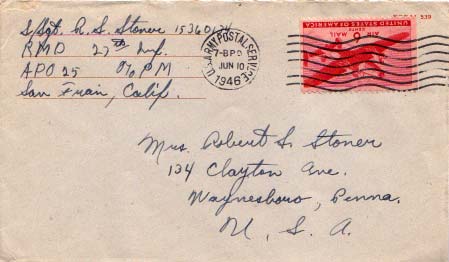 S/Sgt. R. S. Stoner 15360134
RMO 27th Inf.
APO 25 % PM
San Fran, Calif.
U.S. ARMY POSTAL SERVICE
7-BPO
JUN 10
1946
UNITED STATES OF AMERICA
AIR MAIL
6 CENTS 6
539
Mrs. Robert S. Stoner
134 Clayton Ave.
Waynesboro, Penna.
U. S. A.